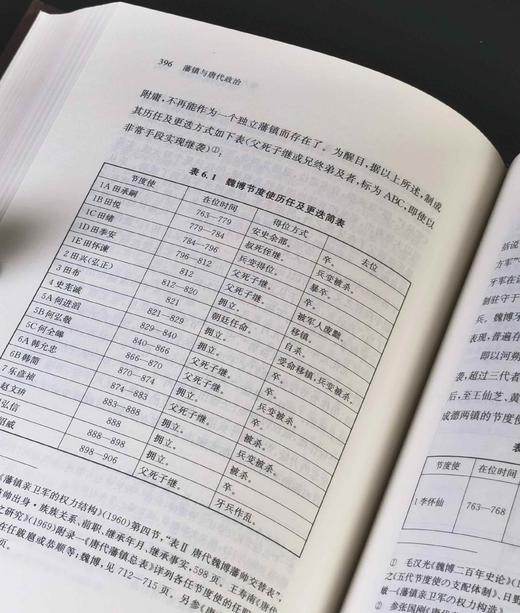 396 藩镇与唐代政治
附庸,不再能作为一个独立藩镇而存在了。为醒目,据以上所述,制成
其历任及更迭方式如下表(父死子继或兄终弟及者,标为 ABC,即使以
非常手段实现继袭)①:
表 6.1 魏博节度使历任及更迭简表
节度使 在位时间 得位方式 去位
1A 田承嗣 763—779 安史余部。 卒。
1B 田悦 779—784 叔死侄继。 兵变被杀。
1C 田绪 784—796 兵变得位。 暴卒。
1D 田季安 796—812 父死子继。 卒。
1E 田怀谏 812 父死子继。 被军人废黜。
2 田兴(弘正) 812—820 拥立。 移镇。
3 田布 821 朝廷任命。 自杀。
4 史宪诚 821—829 拥立。 受命移镇,兵变被杀。
5A 何进滔 829—840 拥立。 卒。
5B 何弘敬 840—866 父死子继。 卒。
5C 何全皞 866—870 父死子继。 兵变被杀。
6A 韩允忠 870—874 拥立。 卒。
6B 韩简 874—883 父死子继。 被杀。
7 乐彦祯 883—888 拥立。
赵文 888 拥立。 被杀。
弘信 888—898 拥立。 卒。
绍威 898—906 父死子继。 牙兵作乱。
《藩镇亲卫军的权力结构》(1960)第四节,"表Ⅱ 唐代魏博藩帅交替表",
帅出身·族族关系、前职、继承年月、继承事实,598 页。王寿南《唐代
之研究》(1969)附录一《唐代藩镇总表》详列各任节度使的任职
在任跋扈或恭顺等;魏博,见 712—715 页。另参《唐
页。
括说
方军"
牙军在
制驻守于
兵。魏博牙
表现,普遍在
即以河朔
袭,超过三代者
后,至王仙芝、黄
成德两镇的节度使
表
节度使 在位时间
1 李怀仙 763—768
① 毛汉光《魏博二百年史论》
之《五代节度使の支配体制》,
敏一《藩镇亲卫军の权力构造》
② 参张国刚《唐代